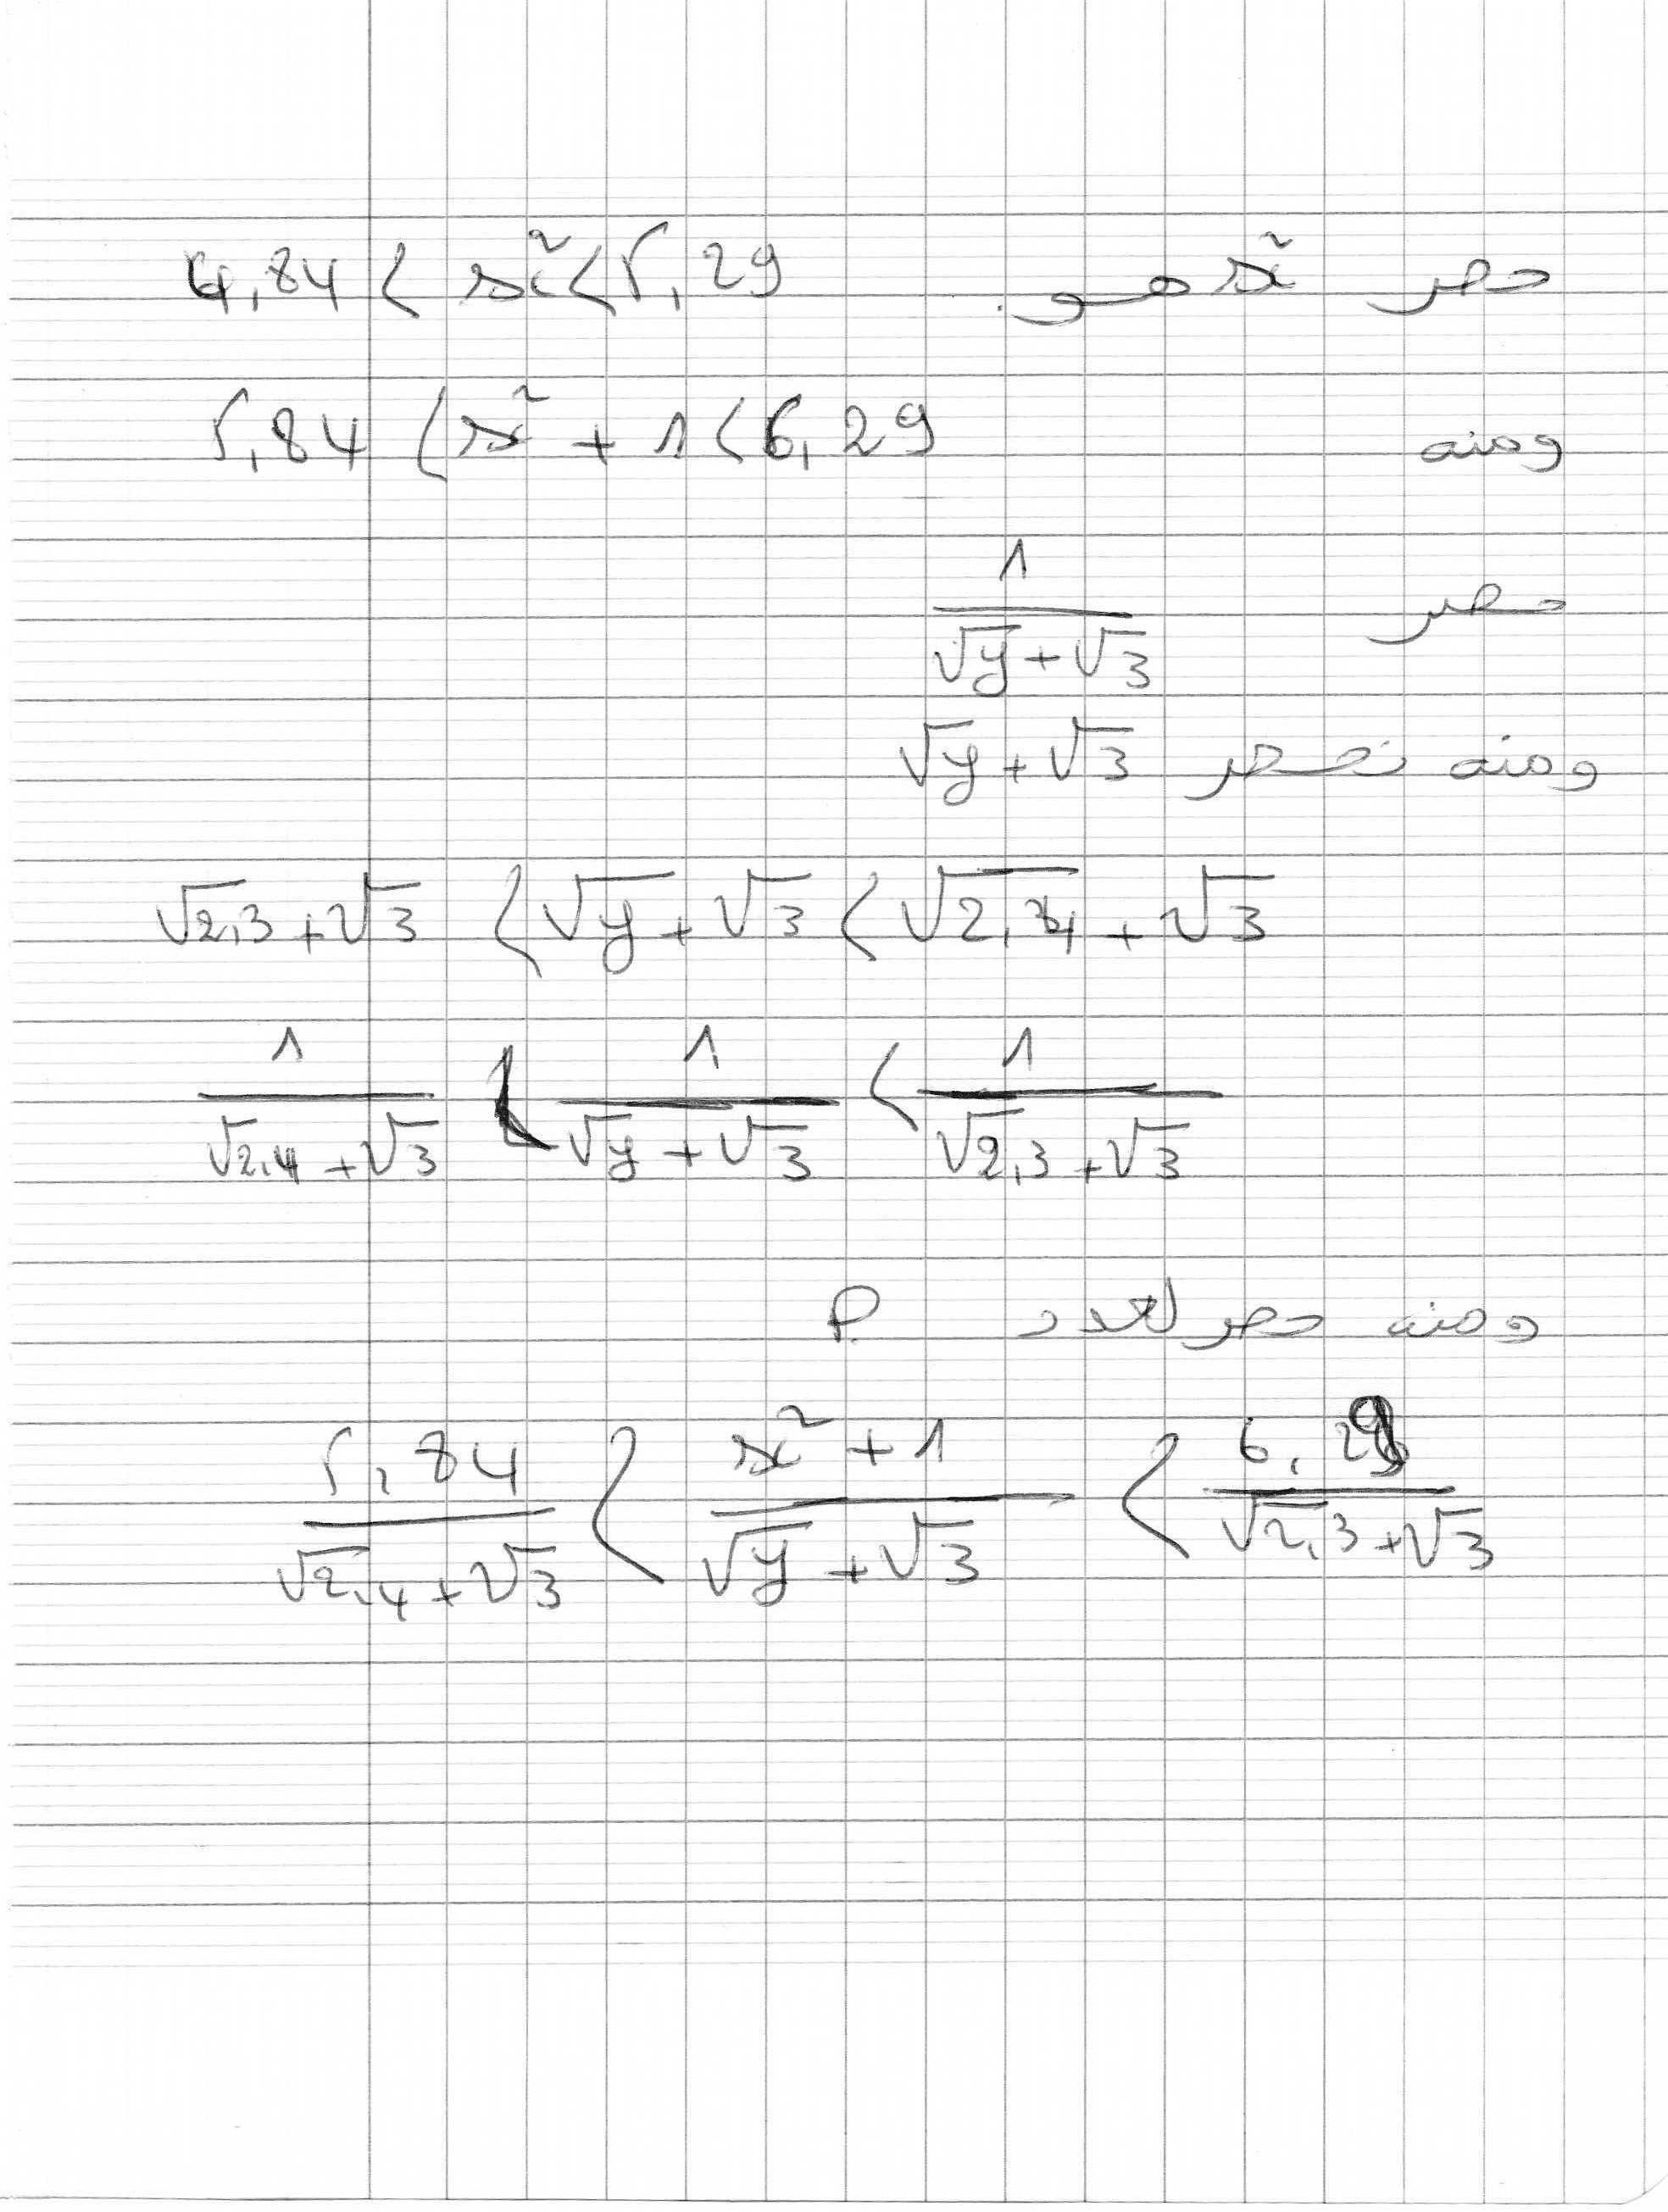 حصر x² هو. 4,84 < x² < 5,29
ومنه 5,84 < x² + 1 < 6,29
حصر 1/(√y + √3)
ومنه نحصر √y + √3
√2,3 + √3 < √y + √3 < √2,4 + √3
1/(√2,4 + √3) < 1/(√y + √3) < 1/(√2,3 + √3)
ومنه حصر لعدد P
5,84/(√2,4 + √3) < (x² + 1)/(√y + √3) < 6,29/(√2,3 + √3)